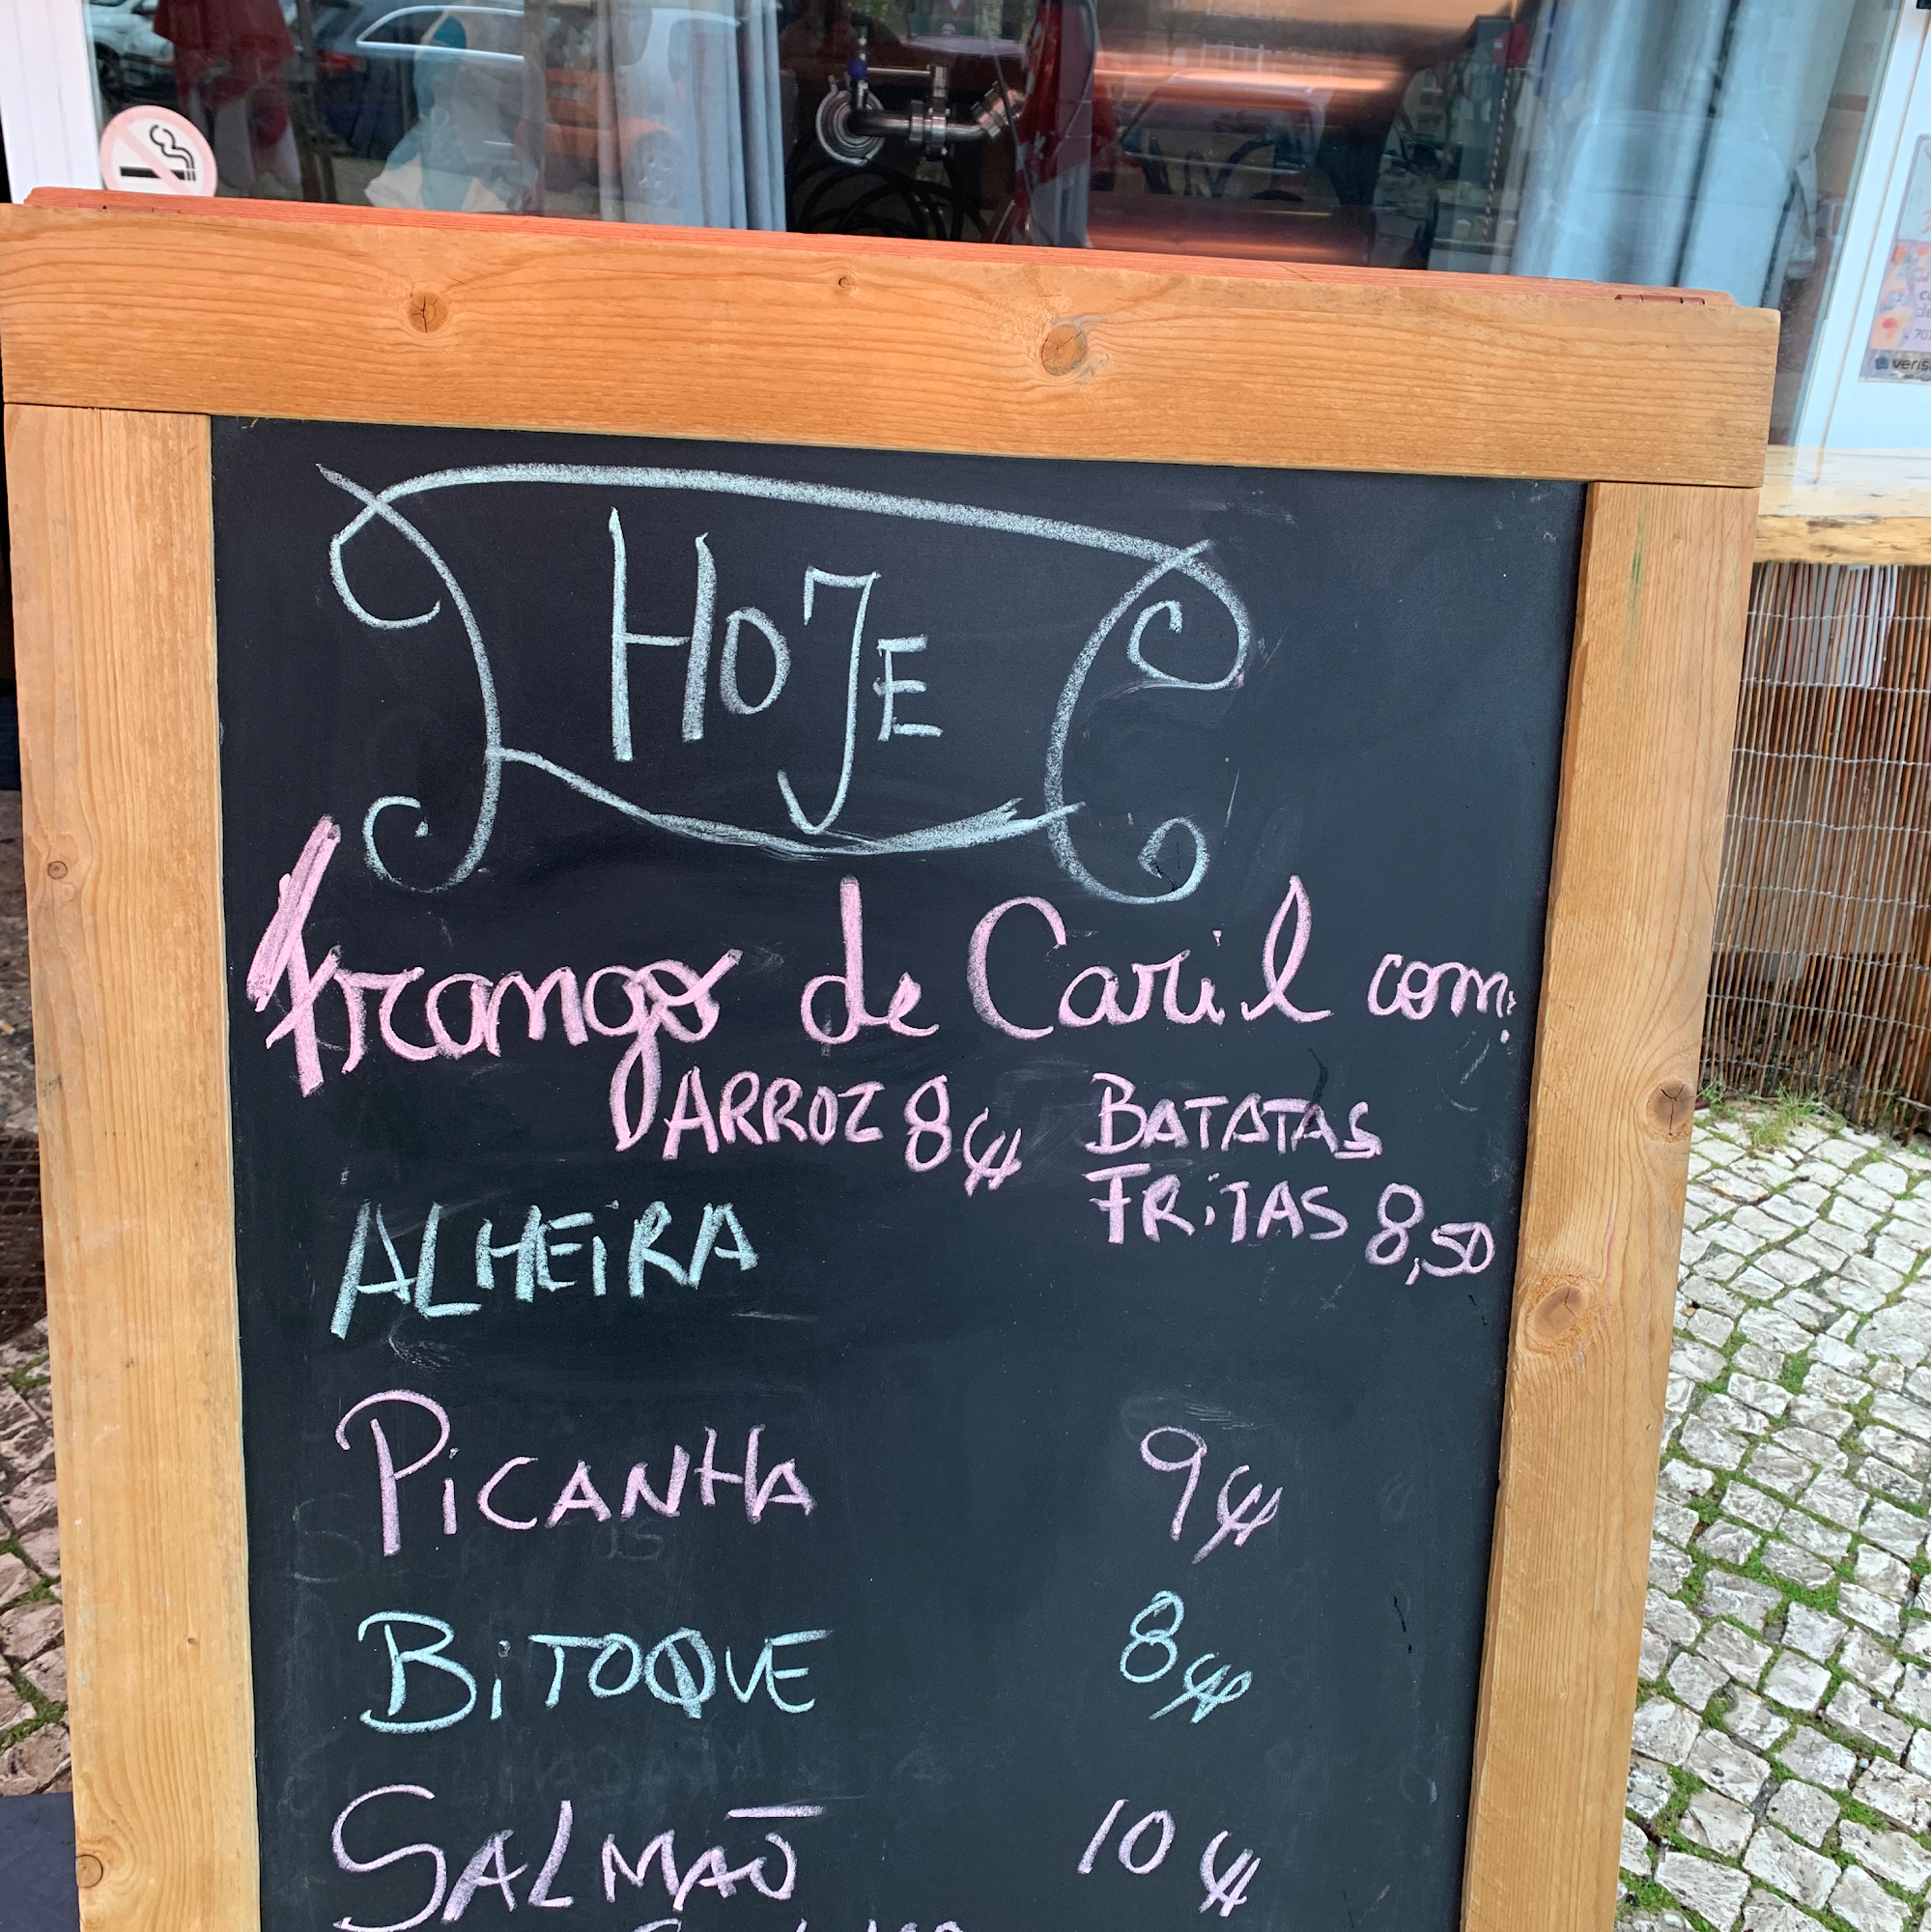 HOJE
Frango de Caril com:
ARROZ 8€ BATATAS
FRITAS 8,50
ALHEIRA
PICANHA 9€
BITOQUE 8€
SALMÃO 10€